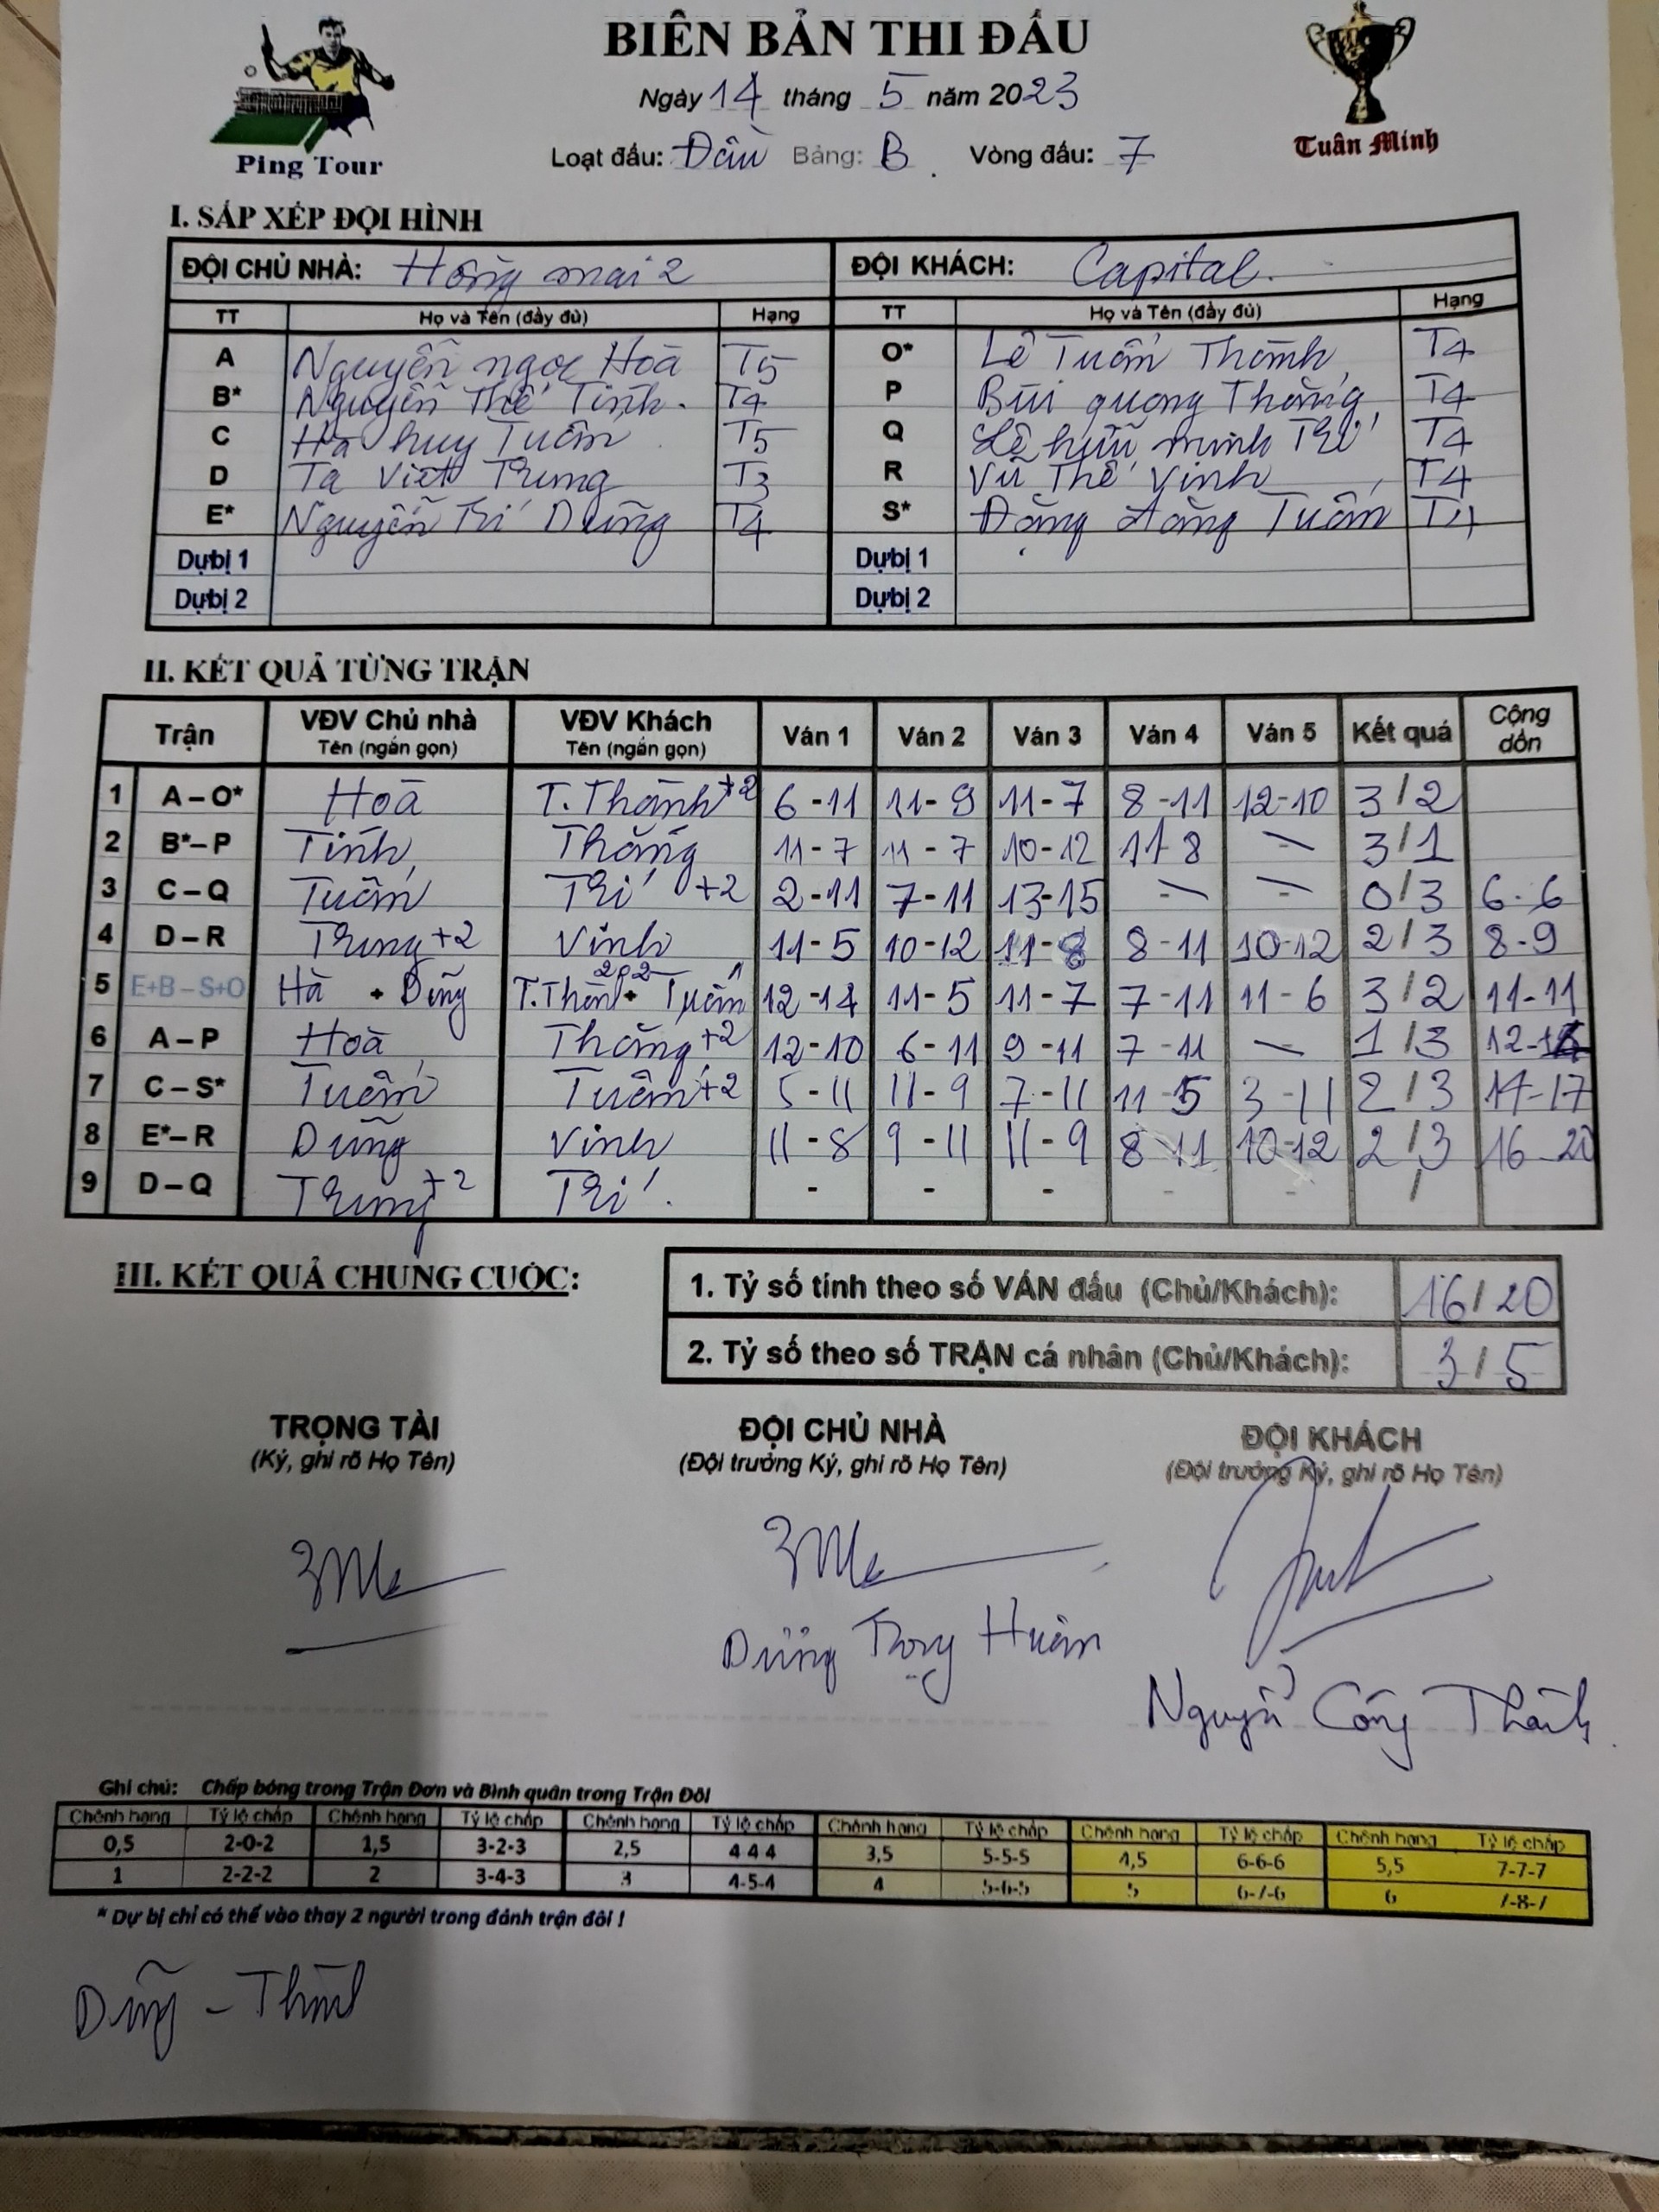 BIÊN BẢN THI ĐẤU
Ngày 14 tháng 5 năm 2023
Loạt đấu: Đấu Bảng: B Vòng đấu: 7
Ping Tour
Tuân Minh
I. SẮP XẾP ĐỘI HÌNH
ĐỘI CHỦ NHÀ: Hồng mai 2 ĐỘI KHÁCH: Capital.
TT Họ và Tên (đầy đủ) Hạng TT Họ và Tên (đầy đủ) Hạng
A Nguyễn ngọc Hoà T5 O* Lê Tuấn Thành T4
B* Nguyễn Thế Tính. T4 P Bùi quang Thắng T4
C Hà huy Tuấn T5 Q Lê hữu minh Trí T4
D Tạ Viết Trung T3 R Vũ Thế Vinh T4
E* Nguyễn Trí Dũng T4 S* Đặng Hoàng Tuấn T4
Dự bị 1 Dự bị 1
Dự bị 2 Dự bị 2
II. KẾT QUẢ TỪNG TRẬN
Trận VĐV Chủ nhà Tên (ngắn gọn) VĐV Khách Tên (ngắn gọn) Ván 1 Ván 2 Ván 3 Ván 4 Ván 5 Kết quả Cộng dồn
1 A – O* Hoà T.Thành +2 6-11 11-9 11-7 8-11 12-10 3/2
2 B* – P Tính Thắng 11-7 11-7 10-12 11-8 - 3/1
3 C – Q Tuấn Trí +2 2-11 7-11 13-15 - - 0/3 6-6
4 D – R Trung +2 Vinh 11-5 10-12 11-8 8-11 10-12 2/3 8-9
5 E+B – S+O Hà + Dũng T.Thành + Tuấn 12-14 11-5 11-7 7-11 11-6 3/2 11-11
6 A – P Hoà Thắng +2 12-10 6-11 9-11 7-11 - 1/3 12-14
7 C – S* Tuấn Tuấn +2 5-11 11-9 7-11 11-5 3-11 2/3 14-17
8 E* – R Dũng Vinh 11-8 9-11 11-9 8-11 10-12 2/3 16-20
9 D – Q Trung +2 Trí. - - - - - /
III. KẾT QUẢ CHUNG CUỘC:
1. Tỷ số tính theo số VÁN đấu (Chủ/Khách): 16/20
2. Tỷ số theo số TRẬN cá nhân (Chủ/Khách): 3/5
TRỌNG TÀI ĐỘI CHỦ NHÀ ĐỘI KHÁCH
(Ký, ghi rõ Họ Tên) (Đội trưởng Ký, ghi rõ Họ Tên) (Đội trưởng Ký, ghi rõ Họ Tên)
Dương Trọng Huân
Nguyễn Công Thành
Ghi chú: Chấp bóng trong Trận Đơn và Bình quân trong Trận Đôi
Chênh hạng Tỷ lệ chấp Chênh hạng Tỷ lệ chấp Chênh hạng Tỷ lệ chấp Chênh hạng Tỷ lệ chấp Chênh hạng Tỷ lệ chấp Chênh hạng Tỷ lệ chấp
0,5 2-0-2 1,5 3-2-3 2,5 4 4 4 3,5 5-5-5 4,5 6-6-6 5,5 7-7-7
1 2-2-2 2 3-4-3 3 4-5-4 4 5-6-5 5 6-7-6 6 7-8-7
* Dự bị chỉ có thể vào thay 2 người trong đánh trận đôi !
Dũng -